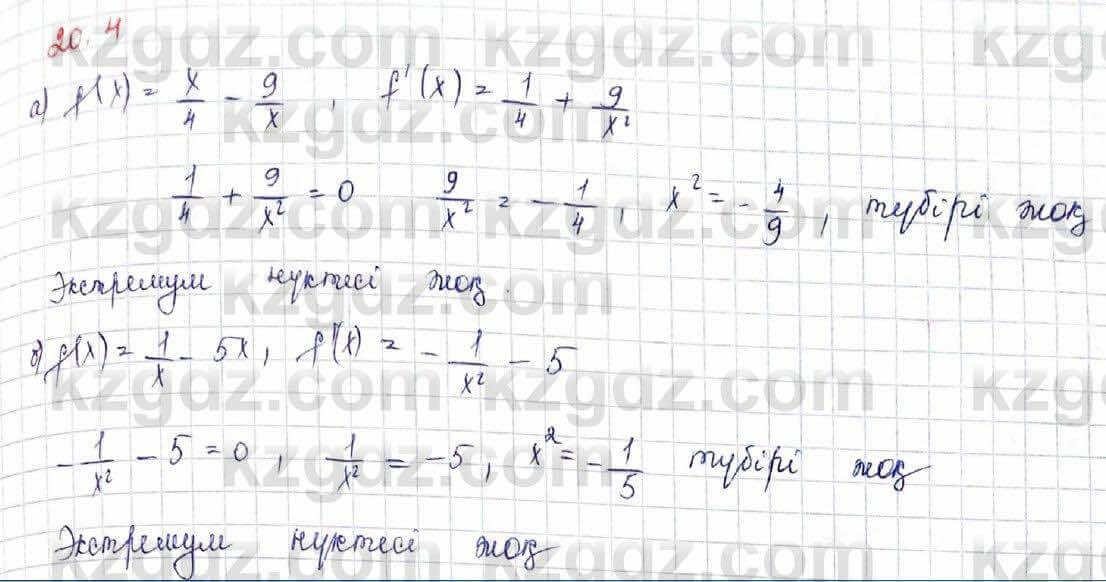 20.4
а) f(x) = x/4 - 9/x , f'(x) = 1/4 + 9/x²
1/4 + 9/x² = 0 9/x² = - 1/4 , x² = - 4/9 , түбірі жоқ
Экстремум нүктесі жоқ.
б) f(x) = 1/x - 5x, f'(x) = - 1/x² - 5
- 1/x² - 5 = 0 , 1/x² = -5 , x² = - 1/5 түбірі жоқ
Экстремум нүктесі жоқ
kzgdz.com kzgdz.com kzgdz.com
kzgdz.com
kzgdz.com kzgdz.com kzgdz.com
kzgdz.com
kzgdz.com kzgdz.com kzgdz.com
kzgdz.com
kzgdz.com kzgdz.com kzgdz.com